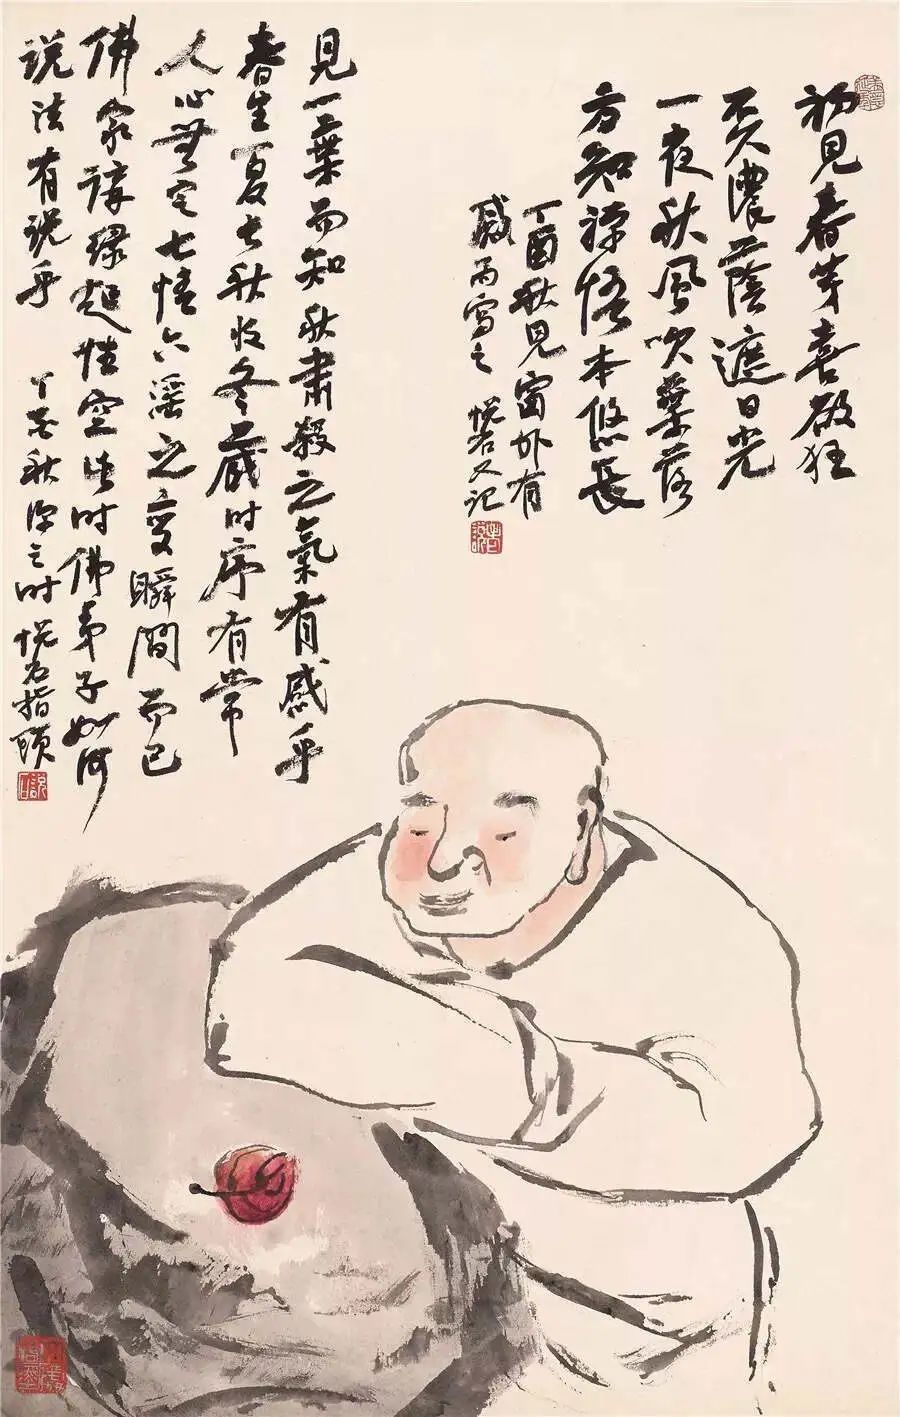 初見春芽喜欲狂
不久濃蔭遮日光
一夜秋風吹葉落
方知禪悟本悠長
丁酉秋見窗外有
感而寫之 悦石又記
見一葉而知秋肅殺之氣有感乎
春生夏長秋收冬藏時序有常
人心無定七情六淫之變瞬間而已
佛家講緣起性空此時佛弟子如何
説法有説乎 丁酉秋深之時 悦石指頭